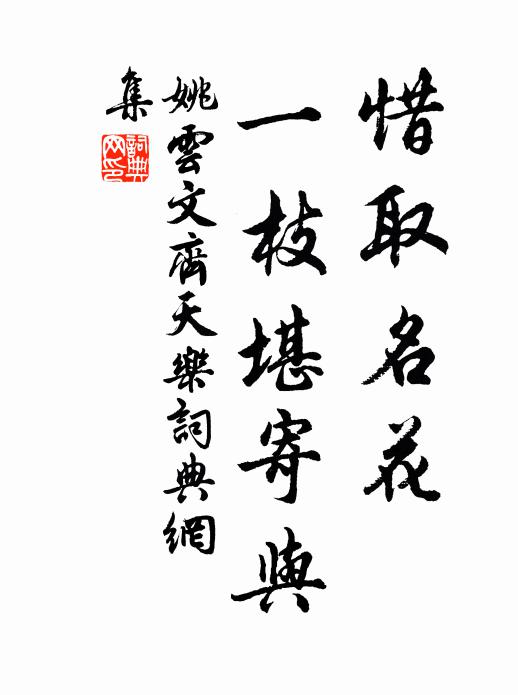 惜取名花
一枝堪寄與
姚雲文齊天樂詞典網
集
詞典
网印